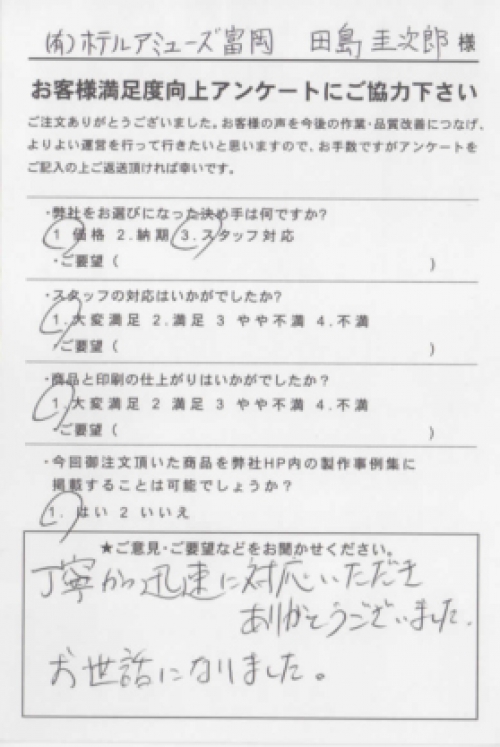 (有)ホテルアミューズ富岡 田島圭次郎様
お客様満足度向上アンケートにご協力下さい
ご注文ありがとうございました。お客様の声を今後の作業・品質改善につなげ、
よりよい運営を行って行きたいと思いますので、お手数ですがアンケートを
ご記入の上ご返送頂ければ幸いです。
・弊社をお選びになった決め手は何ですか?
1 価格 2.納期 3.スタッフ対応
・ご要望( )
・スタッフの対応はいかがでしたか?
1.大変満足 2.満足 3 やや不満 4.不満
・ご要望( )
・商品と印刷の仕上がりはいかがでしたか?
1.大変満足 2 満足 3 やや不満 4.不満
・ご要望( )
・今回御注文頂いた商品を弊社HP内の製作事例集に
掲載することは可能でしょうか?
1. はい 2 いいえ
★ご意見・ご要望などをお聞かせください。
丁寧かつ迅速に対応いただき
ありがとうございました.
お世話になりました。